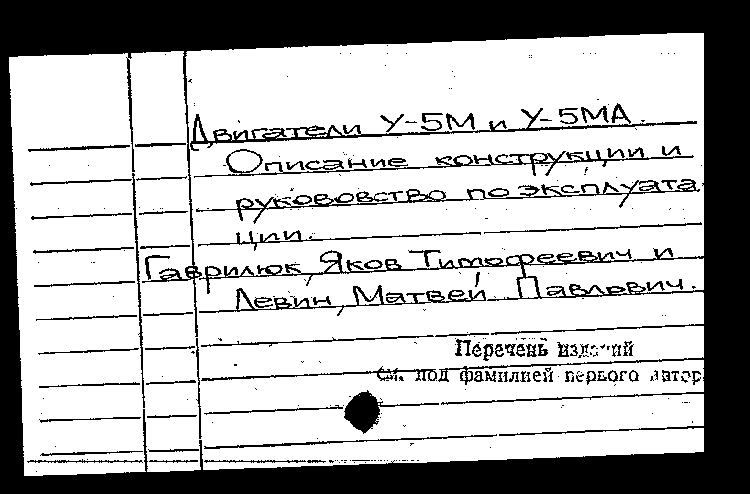 Двигатели У-5М и У-5МА.
Описание конструкции и
руковоство по эксплуата
ции.
Гаврилюк, Яков Тимофеевич и
Левин, Матвей Павлович.
Перечень изданий
см. под фамилией первого автор